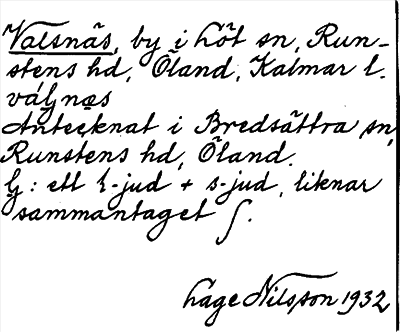 Valsnäs, by i Löt sn, Run-
stens hd, Öland, Kalmar l.
Antecknat i Bredsättra sn,
Runstens hd, Öland.
: ett l-jud + s-jud, liknar
sammantaget ʃ.
Åke Nilsson 1932